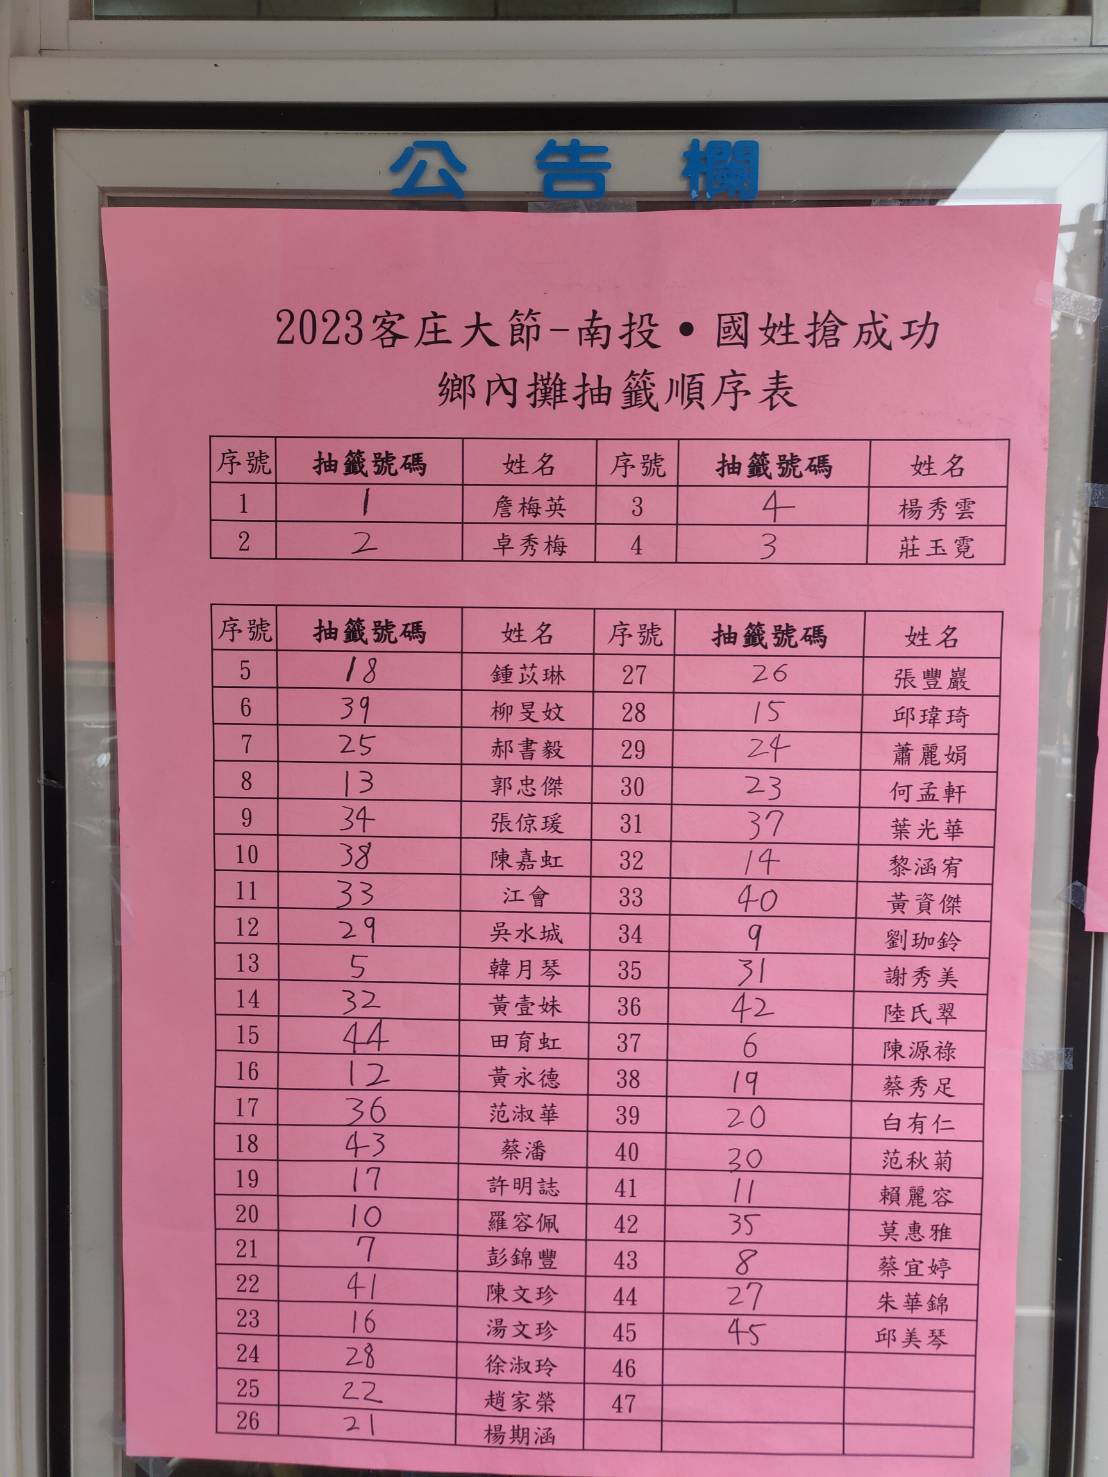 公告欄
2023客庄大節-南投•國姓搶成功
鄉內攤抽籤順序表
序號 抽籤號碼 姓名 序號 抽籤號碼 姓名
1 1 詹梅英 3 4 楊秀雲
2 2 卓秀梅 4 3 莊玉霓
序號 抽籤號碼 姓名 序號 抽籤號碼 姓名
5 18 鍾苡琳 27 26 張豐巖
6 39 柳旻妏 28 15 邱瑋琦
7 25 郝書毅 29 24 蕭麗娟
8 13 郭忠傑 30 23 何孟軒
9 34 張倞瑗 31 37 葉光華
10 38 陳嘉虹 32 14 黎涵宥
11 33 江會 33 40 黃資傑
12 29 吳水城 34 9 劉珈鈴
13 5 韓月琴 35 31 謝秀美
14 32 黃壹妹 36 42 陸氏翠
15 44 田育虹 37 6 陳源祿
16 12 黃永德 38 19 蔡秀足
17 36 范淑華 39 20 白有仁
18 43 蔡潘 40 30 范秋菊
19 17 許明誌 41 11 賴麗容
20 10 羅容佩 42 35 莫惠雅
21 7 彭錦豐 43 8 蔡宜婷
22 41 陳文珍 44 27 朱華錦
23 16 湯文珍 45 45 邱美琴
24 28 徐淑玲 46
25 22 趙家榮 47
26 21 楊期涵